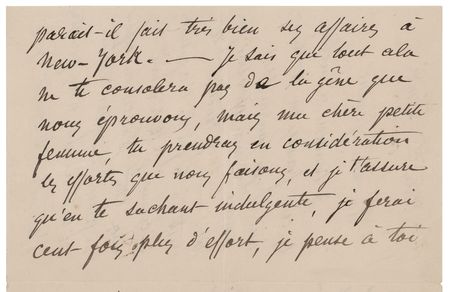 paraît-il fait très bien ses affaires à
New-York. — Je sais que tout cela
ne te consolera pas de la gêne que
nous éprouvons, mais ma chère petite
femme, tu prendras en considération
les efforts que nous faisons, et je t'assure
qu'en te sachant indulgente, je ferai
cent fois plus d'effort, je pense à toi